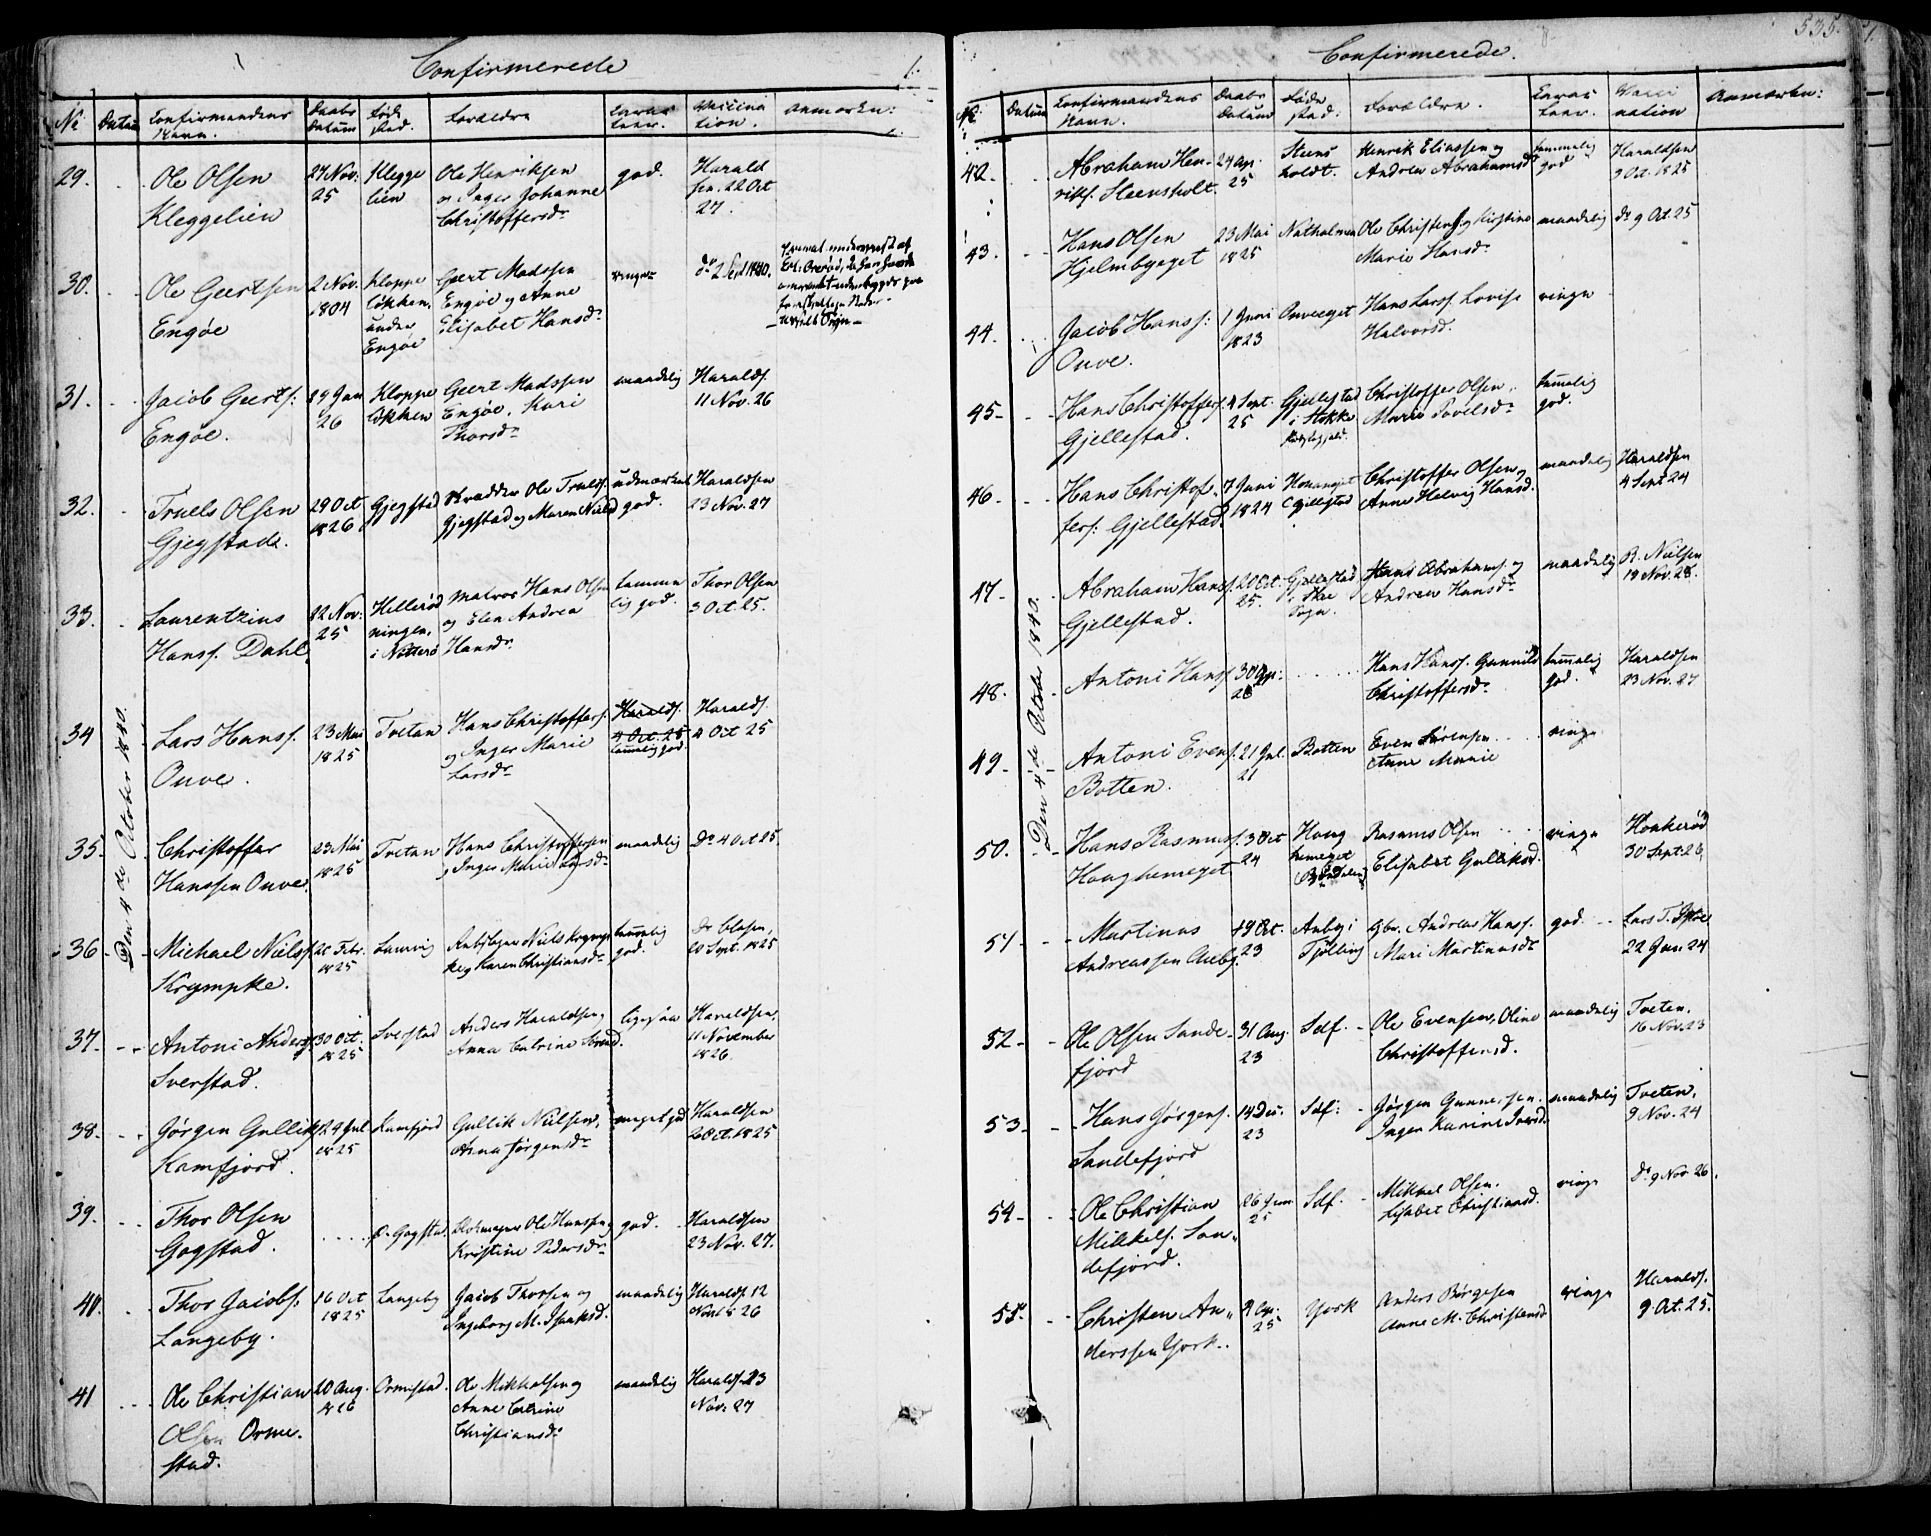 Confirmerede
No Datum Confirmandens Navn. Daabs Datum Føde Sted. Forældre Caracteer. Vaccination. Anmærkn:
Den 4de October 1840.
29. Ole Olsen
Kleggelien
27 Nov:
25
Klegge
lien
Ole Henriksen
og Inger Johanne
Christoffersdr
god.
Harald
sen. 22 Oct
27.
30. Ole Geertsen
Engøe
2 Nov.
1804
Kloppe
løkken.
under
Engøe
Geert Madssen
Engøe og Anne
Elisabet Hansdr
ringe
do 2 Sept 1840.
31. Jacob Geerts:
Engøe.
29 Jan
26
Kloppe
løkken
Geert Madssen
Engøe. Kari
Thorsdr
maadelig
Haralds.
11 Nov. 26
32. Truels Olsen
Gjegstad.
29 Oct
1826
Gjegstad
Skrædder Ole Truls.
Gjegstad og Maren Nielsd
udmærket
god.
Haraldsen
23 Nov. 27
33. Laurentzius
Hanss. Dahl
22 Nov:
25
Hellerød
ningen.
i Nøtterø
Matros Hans Olsen
og Elen Andrea
Hansdr
temme
lig god.
Thor Olsen
3 Oct 25.
34 Lars Hanss.
Onve.
23 Mai
1825
Tvetan
Hans Christoffers.
og Inger Marie
Larsdr
Haralds.
4 Oct. 25
temmelig god.
Haralds.
4 Oct 25
35. Christoffer
Hanssen Onve.
23 Mai
1825
Tvetan
Hans Christoffersen
Inger Marie Larsdr
maadelig
Do 4 Oct 25
36 Michael Nielss.
Krympke.
25 Febr.
1825
Laurvig
Niels Krymp
ke og Karen Christiansdr
temmelig
god.
20 Sept. 1825
37. Antoni Anders
Sverstad.
30 Oct.
1825
Sverstad
Anders Haraldsen
Anna Catrine
ligesaa
Haraldsen,
11 November
1826.
38. Jørgen Gulliks
Kamfjord.
29 Jul
1825
Kamfjord
Gullik Nielsen,
Anna Jørgensdr
meget god
Haraldsen
2 Oct. 1825
39. Thor Olsen
Gogstad.
Ø. Gogstad.
Ole Hanssen
Kristine Pedersdr
god.
Haraldsen
23 Nov. 27.
40. Thor Jacobs.
Langeby.
16 Oct
1825
Langeby
Jacob Thorsen og
Ingeborg M. Isaksd.
maadelig
Haralds. 12
Novb 26
41 Ole Christian
Olsen Orme
stad.
20 Aug.
1826
Ormestad.
Ole Mikkelsen og
Anne Catrine
Christiansdr
maadelig
Haralds 23
Nov. 27
535.
Confirmerede.
No. Datum Confirmandens Navn. Daabs Datum Føde sted. Forældre. Caracteer. Vaccination Anmærkn:
Den 4de October 1840.
42. Abraham Hen-
riks. Steensholt.
24 Apr.
25
Steens
holdt.
Henrik Eliassen og
Andrea Abrahamsd
temmelig
god
Haraldsen
3 Oct. 1825
43. Hans Olsen
Hjelmbyeget
23 Mai
1825
Natholmen
Ole Christens. og Kirstine
Marie Hansdr
maadelig
do 9 Oct. 25
44. Jacob Hanss:
Onve.
1 Juni
1823
Onveeget
Hans Larss. Lovise
Halvorsd.
ringe
45. Hans Christoffers.
Gjellestad.
4 Sept.
25
Gjellestad
i Stokke
Christoffer Olsen.
Maria Povelsdr
temmelig
god.
46. Hans Christof-
fers: Gjellestad.
7 Juni
1824
Gjellestad
Christoffer Olsen og
Anne Helvig Hansd.
maadelig
Haraldsen
4 Sept 24
47. Abraham Hanss.
Gjellestad.
20 Oct.
25.
Gjellestad
Sogn.
Hans Abrahams. og
Andrea Hansdr
maadelig
R. Nielsen
19 Nov. 28.
48. Antoni Hanss.
30 Apr:
28
Hans Hanss. Gunnild
Christoffersdr
temmelig
god.
Haraldsen
23 Nov. 27
49. Antoni Evens.
Botten.
21 Jul.
21
Botten
Even Sørensen
Anne Marie
ringe
50. Hans Rasmuss.
Houghemeget
3 Oct
24
Houg
hemeget
Rasmus Olsen
Elisabet Gulliksd.
ringe
Hoakerød
30 Sept. 26
51 Martinus
Andreassen Auby.
19 Oct.
23
Auby i
Tjølling
Gbr. Andreas Hanss.
Mari Martinusdr
god.
Lars T.
22 Jan. 24
52 Ole Olsen Sande-
fjord
31 Aug.
23
Sdf.
Ole Evensen, Oline
Christoffersd.
maadelig
Tveten.
16 Nov. 23
53 Hans Jørgens.
Sandefjord
14 Dec.
23
Sdf:
Jørgen Gunnersen.
Inger Karine Iversd.
maadelig
Tveten,
9 Nov. 24
54 Ole Christian
Mikkels. San-
defjord.
26 Jun
25
Sdf.
Mikkel Olsen.
Lisabet Christiansd.
ringe
do 9 Nov 26.
55 Christen An-
derssen York.
9 Apr.
25
York
Anders Børgesen
Anne M. Christensd
ringe
Haralds.
9 Oct. 25.